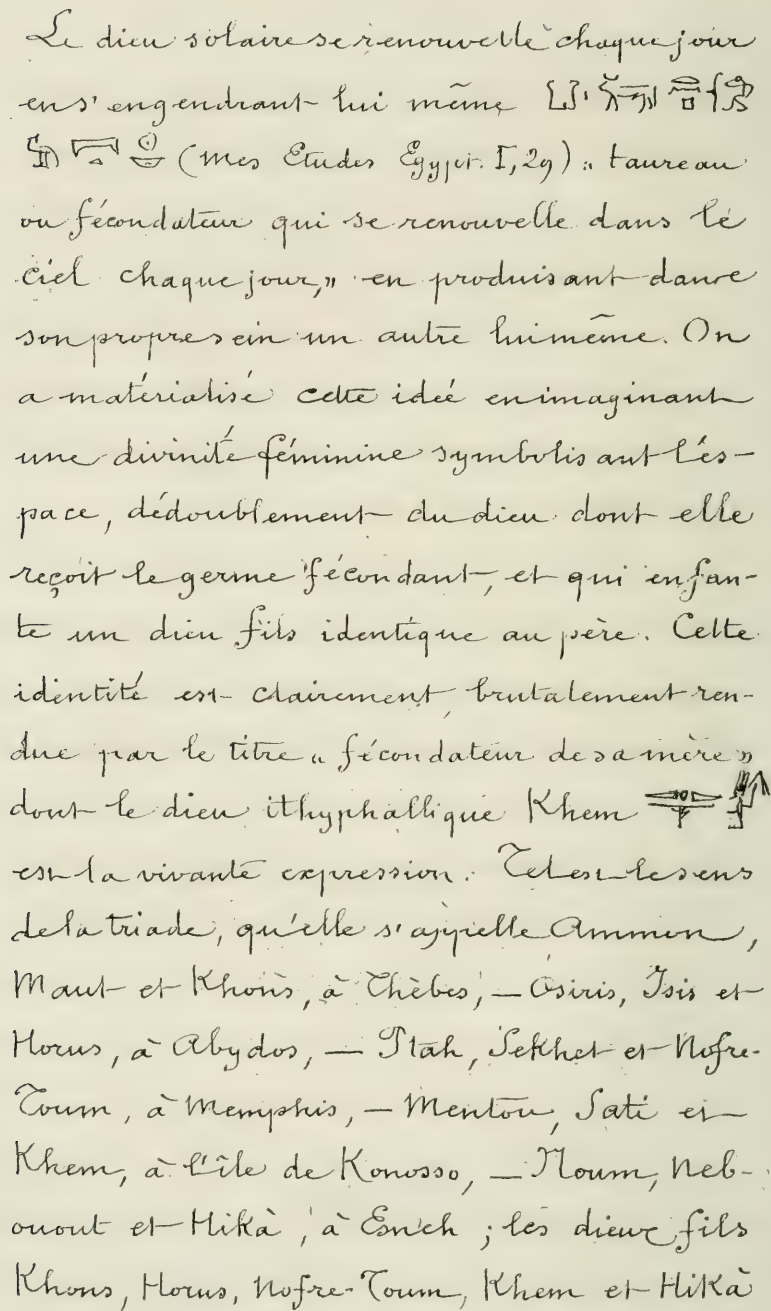 Le dieu solaire se renouvelle chaque jour
en s'engendrant lui même
(mes Etudes Egypt. I, 29) „ taureau
ou fécondateur qui se renouvelle dans le
ciel chaque jour, „ en produisant dans
son propre sein un autre lui même. On
a matérialisé cette idée en imaginant
une divinité féminine symbolisant l'es-
pace, dédoublement du dieu dont elle
reçoit le germe fécondant, et qui enfan-
te un dieu fils identique au père. Cette
identité est clairement, brutalement ren-
due par le titre „ fécondateur de sa mère „
dont le dieu ithyphallique Khem
est la vivante expression. Tel est le sens
de la triade, qu'elle s'appelle Ammon,
Maut et Khons, à Thèbes, — Osiris, Isis et
Horus, à Abydos, — Ptah, Sekhet et Nofre-
Toum, à Memphis, — Mentou, Sati et
Khem, à l'île de Konosso, — Noum, Neb-
ouout et Hikà, à Esneh ; les dieux fils
Khons, Horus, Nofre-Toum, Khem et Hikà